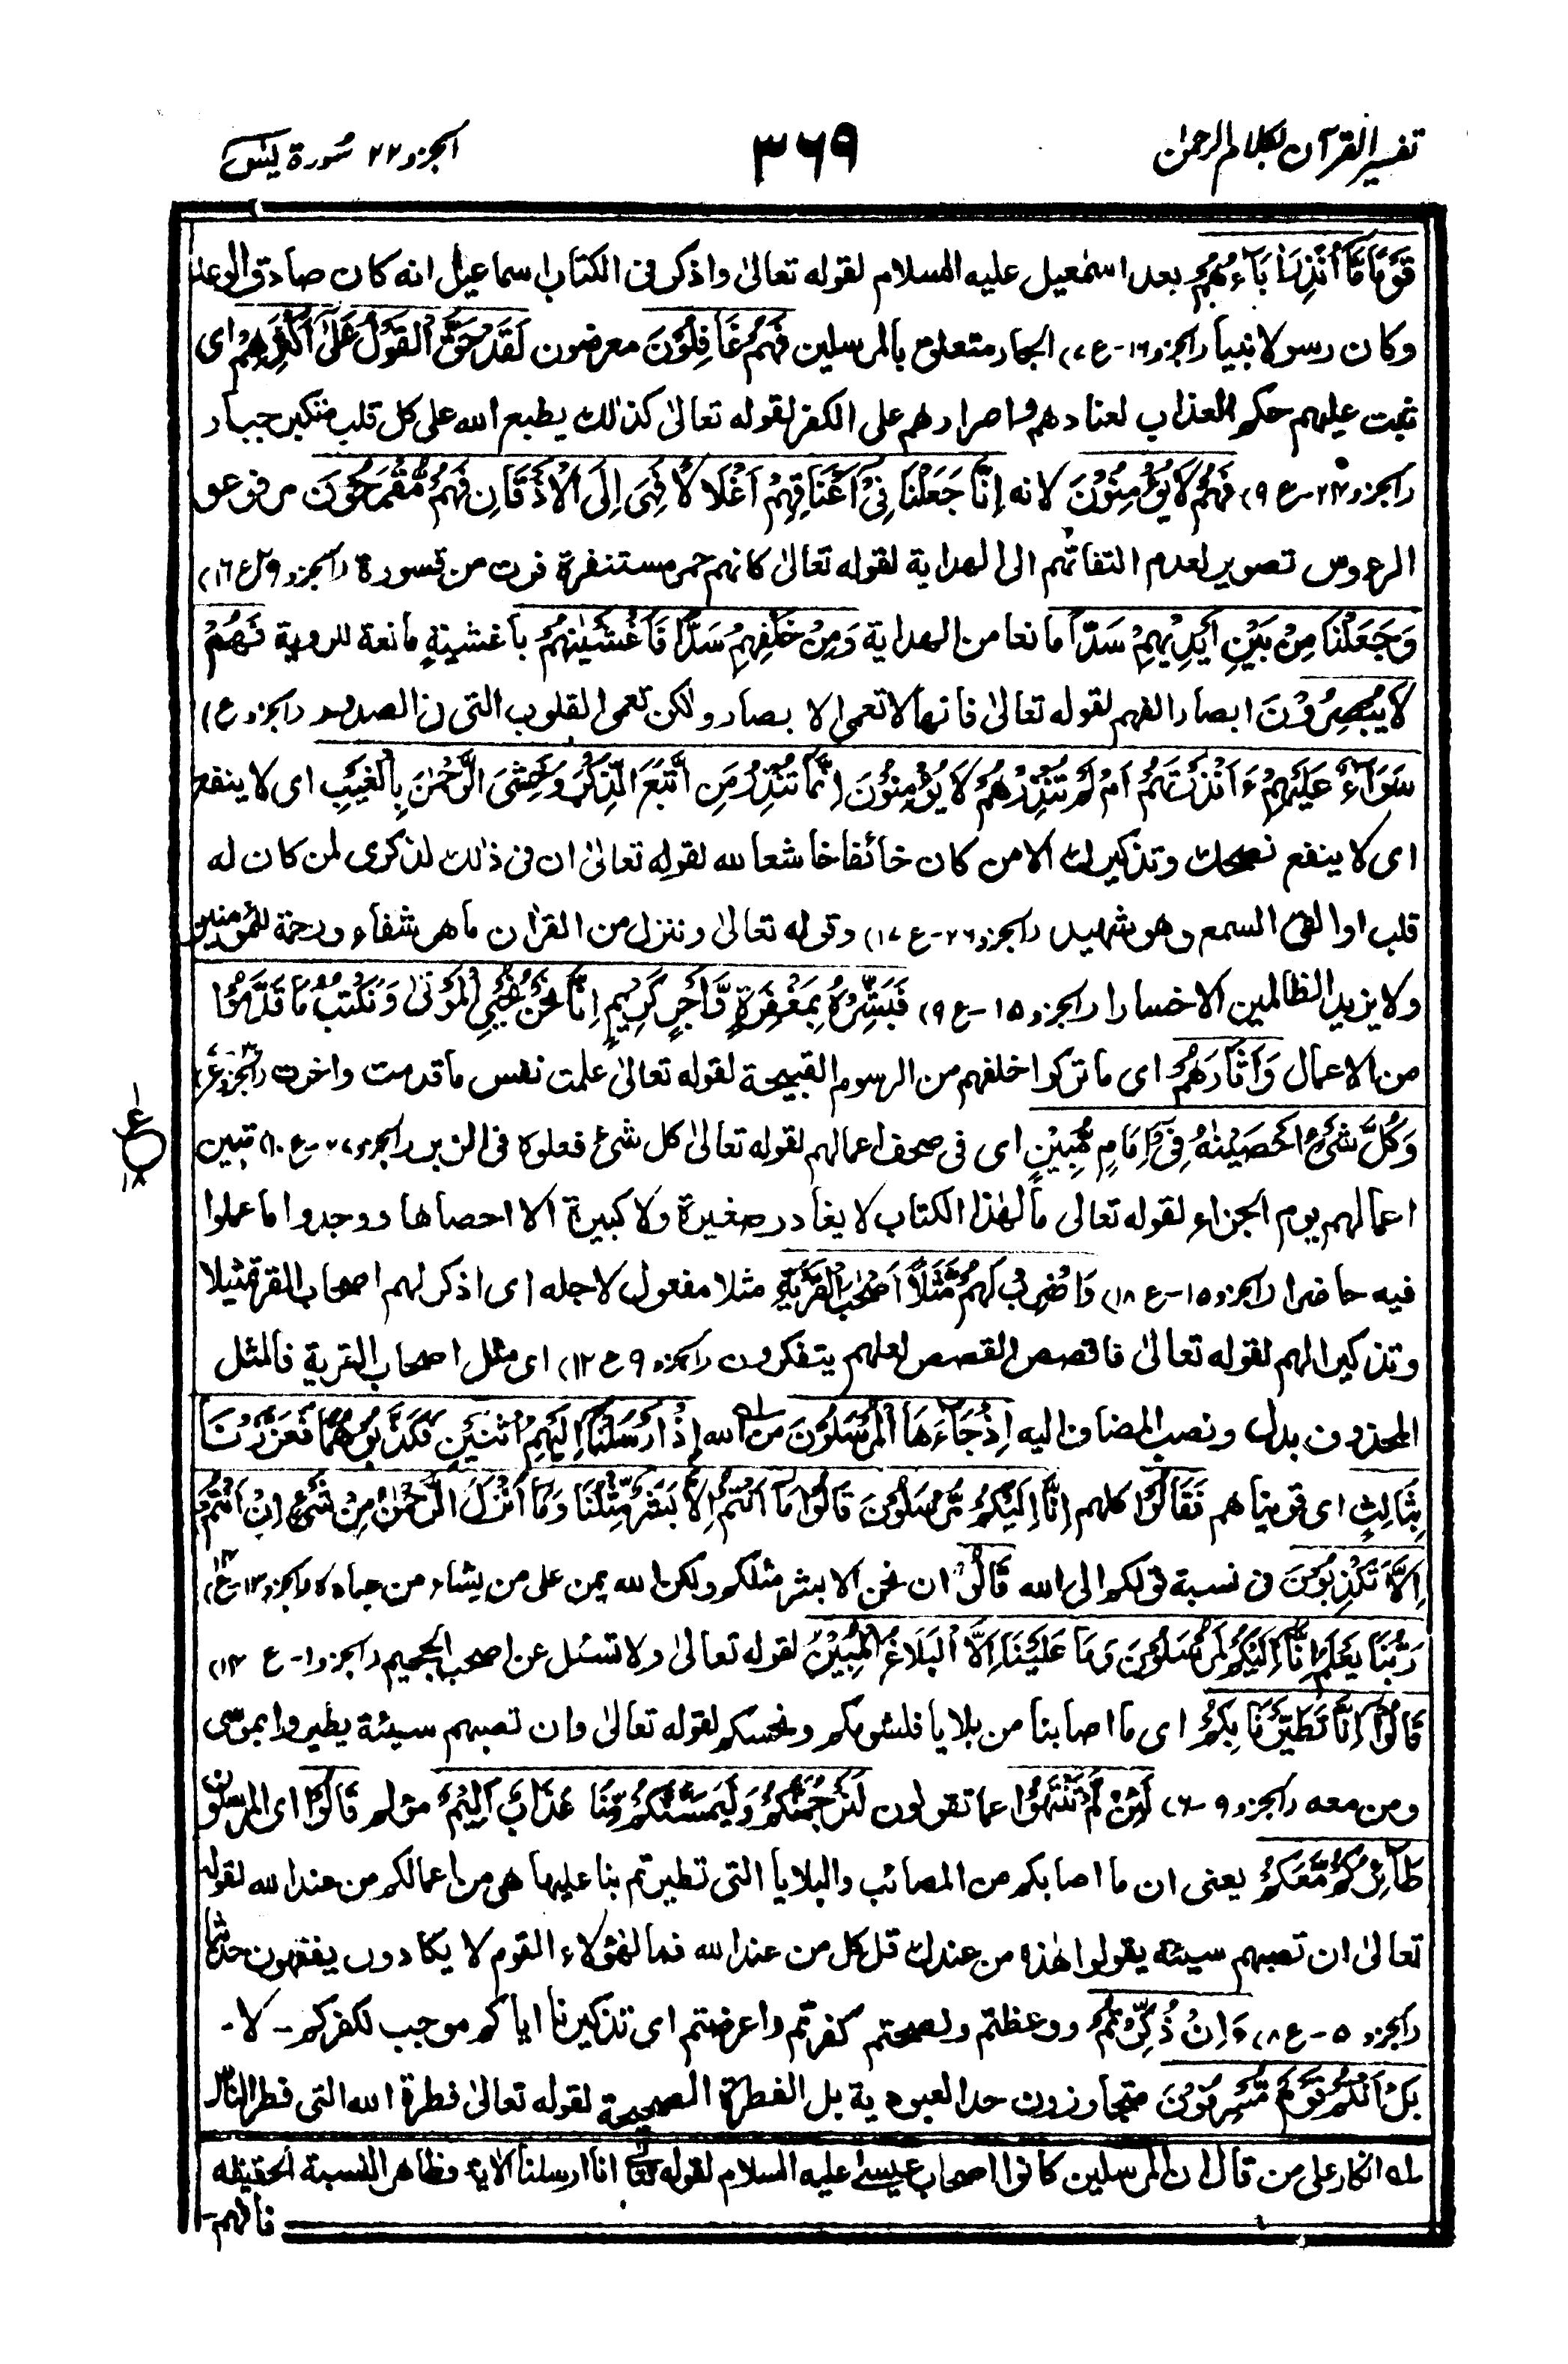 تفسير القرآن بكلام الرحمن
٣٦٩
الجزو ٢٢ سورة يٰسٓ
قَوْمًا مَّا أُنْذِرَ اٰبَآءُهُمْ بعد اسمٰعيل عليه السلام لقوله تعالىٰ واذكر فى الكتاب اسماعيل انه كان صادق الوعد
وكان رسولا نبيا (الجزو ١٦-ع ٧) الجار متعلق بالمرسلين فَهُمْ غَافِلُوْنَ معرضون لَقَدْ حَقَّ الْقَوْلُ عَلىٰٓ أَكْثَرِهِمْ اى
ثبت عليهم حكم العذاب لعنادهم واصرارهم على الكفر لقوله تعالىٰ كذٰلك يطبع الله على كل قلب متكبر جبار
(الجزو ٢٤-ع ٩) فَهُمْ لَا يُؤْمِنُوْنَ لانه إِنَّا جَعَلْنَا فِىْٓ أَعْنَاقِهِمْ اَغْلَالًا فَهِىَ اِلَى الْاَذْقَانِ فَهُمْ مُّقْمَحُوْنَ مرفوعو
الرءوس تصوير لعدم التفاتهم الى الهداية لقوله تعالىٰ كانهم حمر مستنفرة فرت من قسورة (الجزو ٢٩ ع ١٦)
وَجَعَلْنَا مِنْ بَيْنِ اَيْدِيْهِمْ سَدًّا مانعا من الهداية وَمِنْ خَلْفِهِمْ سَدًّا فَاَغْشَيْنٰهُمْ باغشيةٍ مانعة للروية فَهُمْ
لَا يُبْصِرُوْنَ ابصار الفهم لقوله تعالىٰ فانها لا تعمى الابصار ولكن تعمى القلوب التى فى الصدور (الجزو ع)
سَوَآءٌ عَلَيْهِمْ ءَاَنْذَرْتَهُمْ اَمْ لَمْ تُنْذِرْهُمْ لَا يُؤْمِنُوْنَ اِنَّمَا تُنْذِرُ مَنِ اتَّبَعَ الذِّكْرَ وَخَشِىَ الرَّحْمٰنَ بِالْغَيْبِ اى لا ينفع
اى لا ينفع نصحك وتذكيرك الا من كان خائفا خاشعا لله لقوله تعالىٰ ان فى ذٰلك لذكرى لمن كان له
قلب او القى السمع وهو شهيد (الجزو ٢٦-ع ١٧) وقوله تعالىٰ وننزل من القراٰن ما هو شفاء ورحمة للمؤمنين
ولا يزيد الظالمين الا خسارا (الجزو ١٥-ع ٩) فَبَشِّرْهُ بِمَغْفِرَةٍ وَّاَجْرٍ كَرِيْمٍ اِنَّا نَحْنُ نُحْىِ الْمَوْتٰى وَنَكْتُبُ مَا قَدَّمُوْا
من الاعمال وَاٰثَارَهُمْ اى ما تركوا خلفهم من الرسوم القبيحة لقوله تعالىٰ علمت نفس ما قدمت واخرت
وَكُلَّ شَىْءٍ اَحْصَيْنٰهُ فِىْٓ اِمَامٍ مُّبِيْنٍ اى فى صحف اعمالهم لقوله تعالىٰ كل شئ فعلوه فى الزبر (الجزو ٢٧-ع ١٠) تبين
اعمالهم يوم الجزاء لقوله تعالى مالهٰذا الكتاب لا يغادر صغيرة ولا كبيرة الا احصاها ووجدوا ما عملوا
فيه حاضرا (الجزو ١٥-ع ١٨) وَاضْرِبْ لَهُمْ مَّثَلًا اَصْحٰبَ الْقَرْيَةِ مثلا مفعول لاجله اى اذكر لهم اصحاب القرية تمثيلا
وتذكيرا لهم لقوله تعالىٰ فاقصص القصص لعلهم يتفكرون (الجزو ٩ ع ١٢) اى مثل اصحاب القرية فالمثل
المحذوف بدل ونصب المضاف اليه اِذْ جَآءَهَا الْمُرْسَلُوْنَ من الله اِذْ اَرْسَلْنَا اِلَيْهِمُ اثْنَيْنِ فَكَذَّبُوْهُمَا فَعَزَّزْنَا
بِثَالِثٍ اى قويناهم فَقَالُوْا كلهم اِنَّا اِلَيْكُمْ مُّرْسَلُوْنَ قَالُوْا مَا اَنْتُمْ اِلَّا بَشَرٌ مِّثْلُنَا وَمَا اَنْزَلَ الرَّحْمٰنُ مِنْ شَىْءٍ اِنْ اَنْتُمْ
اِلَّا تَكْذِبُوْنَ فى نسبة قولكم الى الله قَالُوْا ان نحن الا بشر مثلكم ولكن الله يمن على من يشاء من عباده (الجزو ١٣-ع ١٤)
رَبُّنَا يَعْلَمُ اِنَّا اِلَيْكُمْ لَمُرْسَلُوْنَ وَمَا عَلَيْنَا اِلَّا الْبَلَاغُ الْمُبِيْنُ لقوله تعالىٰ ولا تسئل عن اصحٰب الجحيم (الجزو ١-ع ١٤)
قَالُوْا اِنَّا تَطَيَّرْنَا بِكُمْ اى ما اصابنا من بلايا فلشومكم ونحسكم لقوله تعالىٰ وان تصبهم سيئة يطيروا بموسى
ومن معه (الجزو ٩-٦) لَئِنْ لَّمْ تَنْتَهُوْا عما تقولون لَنَرْجُمَنَّكُمْ وَلَيَمَسَّنَّكُمْ مِّنَّا عَذَابٌ اَلِيْمٌ مؤلم قَالُوْا اى المرسلون
طَآئِرُكُمْ مَّعَكُمْ يعنى ان ما اصابكم من المصائب والبلايا التى تطيرتم بنا عليها هى من اعمالكم من عند الله لقوله
تعالىٰ ان تصبهم سيئة يقولوا هٰذه من عندك قل كل من عند الله فمال هٰؤلاء القوم لا يكادون يفقهون حديثا
(الجزو ٥-ع ٨) ءَاِنْ ذُكِّرْتُمْ ووعظتم ونصحتم كفرتم واعرضتم اى تذكيرنا اياكم موجب لكفركم - لا -
بَلْ اَنْتُمْ قَوْمٌ مُّسْرِفُوْنَ متجاوزون حد العبودية بل الفطرة الصحيحة لقوله تعالىٰ فطرة الله التى فطر الناس
ع
١٨
له انكار على من قال ان المرسلين كانوا اصحاب عيسىٰ عليه السلام لقوله تعالى انا ارسلنا الاية وظاهر النسبة الحقيقة
فافهم-